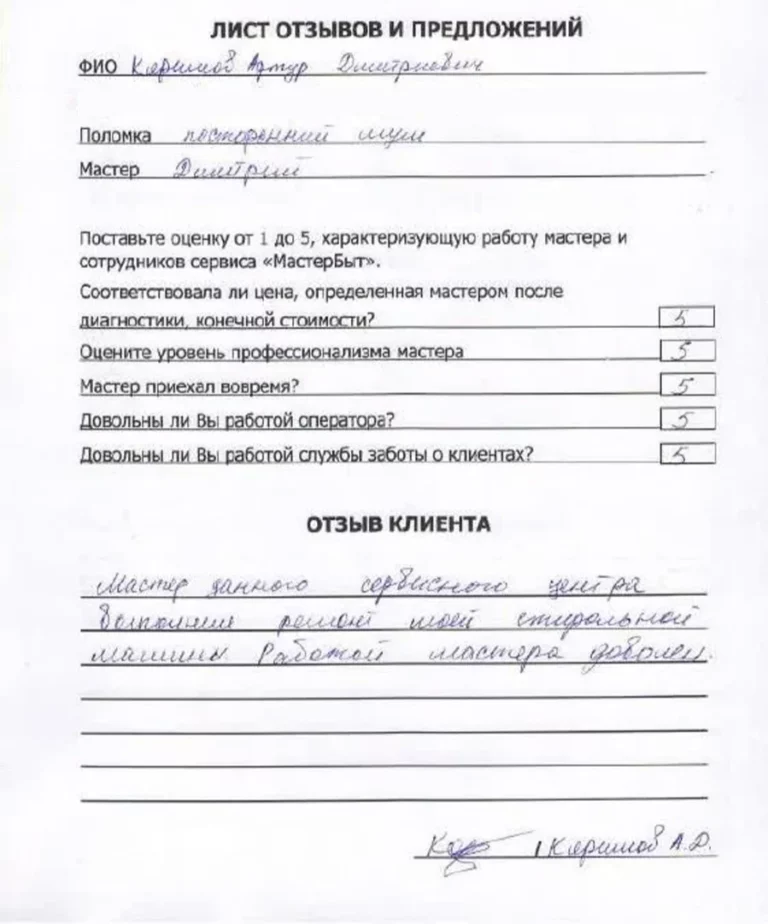 ЛИСТ ОТЗЫВОВ И ПРЕДЛОЖЕНИЙ
ФИО Каримов Артур Дмитриевич
Поломка посторенний шум
Мастер Дмитрий
Поставьте оценку от 1 до 5, характеризующую работу мастера и
сотрудников сервиса «МастерБыт».
Соответствовала ли цена, определенная мастером после
диагностики, конечной стоимости? 5
Оцените уровень профессионализма мастера 5
Мастер приехал вовремя? 5
Довольны ли Вы работой оператора? 5
Довольны ли Вы работой службы заботы о клиентах? 5
ОТЗЫВ КЛИЕНТА
Мастер данного сервисного центра
выполнил ремонт моей стиральной
машины. Работой мастера доволен.
/ Каримов А.Д.